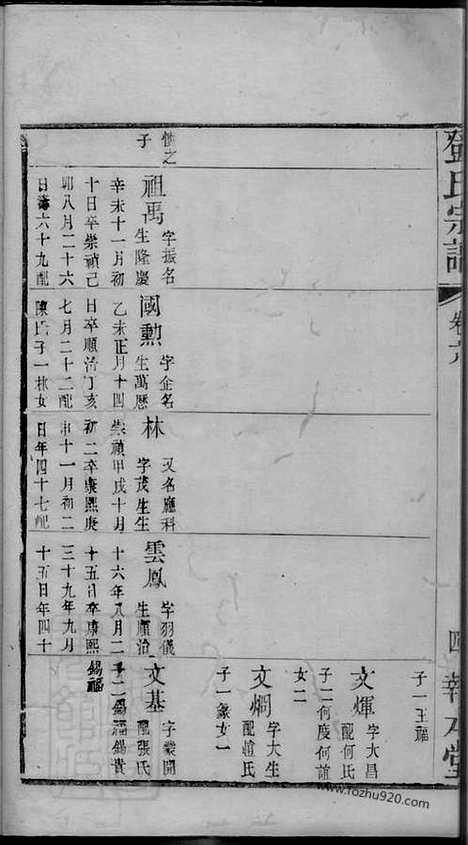 鄧氏宗譜
卷六
四
報本堂
慎之
子
祖禹
字振名
生隆慶
辛未十一月初
十日卒崇禎己
卯八月二十六
日壽六十九配
國勲
字企名
生萬曆
乙未正月十四
日卒順治丁亥
七月二十二配
陳氏子一林女
林
又名應科
字茂生生
崇禎甲戌十月
初二卒康熙庚
申十一月初二
日年四十七配
雲鳳
字羽儀
生順治
十六年八月二
十五日卒康熙
三十九年九月
十五日年四十
子一玉福
文煇
字大昌
配何氏
子二何度何誼
女二
文炯
字大生
配趙氏
子一象女一
文基
字叢開
配張氏
子二錫福錫貴
錫福
www.fozhu920.com